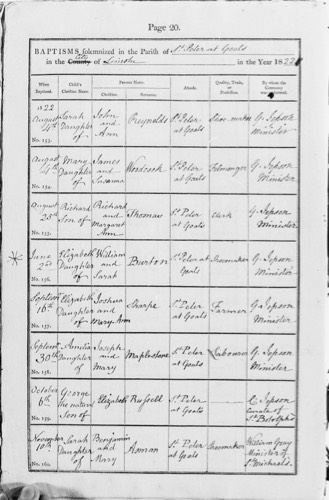 Page 20.
BAPTISMS solemnized in the Parish of St Peter at Goats
in the County City of Lincoln in the Year 1822
When Baptized. Child's Christian Name. Parents Name. Christian. Surname. Abode. Quality, Trade, or Profession. By whom the Ceremony was performed.
1822
August 4th No. 153. Sarah Daughter of John and Ann Reynolds St Peter at Goats G. Jepson Minister
August 4th No. 154. Mary Daughter of James and Susanna Woodcock St Peter at Goats Felmonger G. Jepson Minister
August 25th No. 155. Richard Son of Richard and Margaret Ann Thomas St Peter at Goats Clerk G. Jepson Minister
June 2nd No. 156. Elizabeth Daughter of William and Sarah Burton St Peter at Goats Shoemaker G. Jepson Minister
Septem 16th No. 157. Elizabeth Daughter of Joshua and Mary Ann Sharpe St Peter at Goats Farmer G. Jepson Minister
Septem 30th No. 158. Amelia Daughter of Joseph and Mary Maplestone St Peter at Goats Labourer G. Jepson Minister
October 6th No. 159. George the natural Son of Elizabeth Russell St Peter at Goats Curate of St Botolphs
November 10th No. 160. Sarah Daughter of Benjamin and Mary Asman St Peter at Goats Shoemaker William Gray Minister of St Michaels.